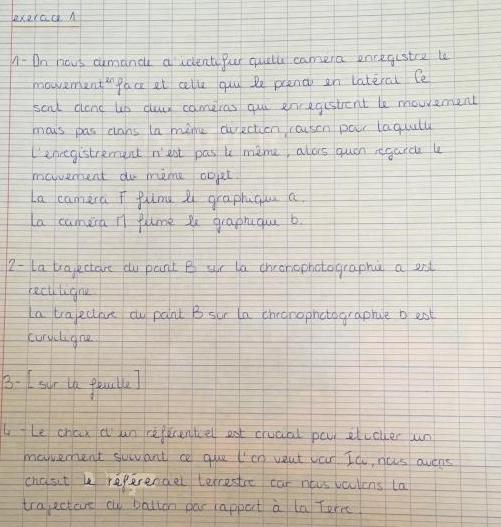 exercice 1
1- On nous demande d'identifier quelle caméra enregistre le
mouvement en face et celle qui le prend en latéral. Ce
sont donc les deux caméras qui enregistrent le mouvement
mais pas dans la même direction, raison pour laquelle
l'enregistrement n'est pas le même, alors qu'on regarde le
mouvement du même objet.
La caméra F filme le graphique a.
La caméra M filme le graphique b.
2- La trajectoire du point B sur la chronophotographie a est
rectiligne
La trajectoire du point B sur la chronophotographie b est
curviligne
3- [sur la feuille]
4- Le choix d'un référentiel est crucial pour étudier un
mouvement suivant ce que l'on veut voir. Ici, nous avons
choisit le référentiel terrestre car nous voulons la
trajectoire du ballon par rapport à la Terre.